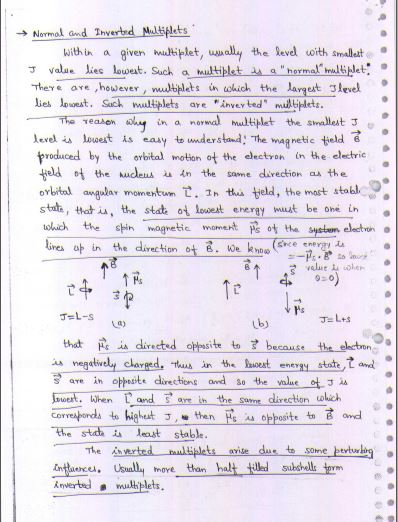 → Normal and Inverted Multiplets
Within a given multiplet, usually the level with smallest
J value lies lowest. Such a multiplet is a "normal" multiplet.
There are, however, multiplets in which the largest J level
lies lowest. Such multiplets are "inverted" multiplets.
The reason why in a normal multiplet the smallest J
level is lowest is easy to understand. The magnetic field B⃗
produced by the orbital motion of the electron in the electric
field of the nucleus is in the same direction as the
orbital angular momentum L⃗. In this field, the most stable
state, that is, the state of lowest energy must be one in
which the spin magnetic moment μ⃗s of the system electron
lines up in the direction of B⃗. We know (since energy is
= -μ⃗s·B⃗ so lowest
value is when
θ=0)
B⃗
μ⃗s
L⃗
S⃗
J=L-S
(a)
B⃗
S⃗
L⃗
μ⃗s
(b)
J=L+S
that μ⃗s is directed opposite to S⃗ because the electron
is negatively charged. Thus in the lowest energy state, L⃗ and
S⃗ are in opposite directions and so the value of J is
lowest. When L⃗ and S⃗ are in the same direction which
corresponds to highest J, then μ⃗s is opposite to B⃗ and
the state is least stable.
The inverted multiplets arise due to some perturbing
influences. Usually more than half filled subshells form
inverted multiplets.